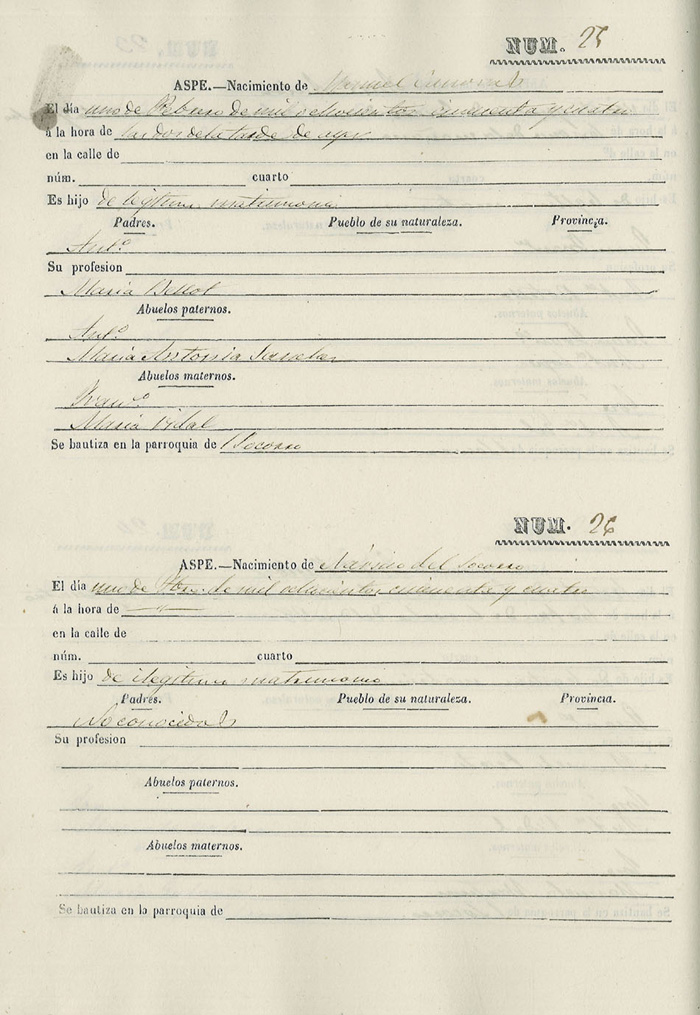 NUM. 25
ASPE.—Nacimiento de Manuel
El día uno de Febrero de mil ochocientos cincuenta y cuatro
á la hora de las dos de la tarde de ayer
en la calle de
núm. cuarto
Es hijo de legitimo matrimonio
Padres. Pueblo de su naturaleza. Provincia.
Ant.º
Su profesion
Maria Bellot
Abuelos paternos.
Ant.º
Maria Antonia
Abuelos maternos.
Fran.º
Maria Vidal
Se bautiza en la parroquia de Socorro
NUM. 26
ASPE.—Nacimiento de del Socorro
El día uno de de mil ochocientos cincuenta y cuatro
á la hora de
en la calle de
núm. cuarto
Es hijo de ilegitimo matrimonio
Padres. Pueblo de su naturaleza. Provincia.
No conocidos
Su profesion
Abuelos paternos.
Abuelos maternos.
Se bautiza en la parroquia de